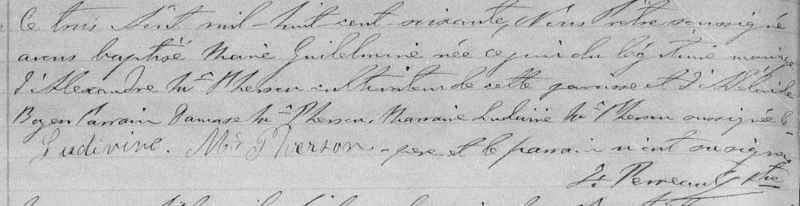 Ce trois Août mil-huit cent-soixante, Nous Prêtre soussigné
avons baptisé Marie Guilelmine née ce jour du légitime mariage
d'Alexandre Mc Pherson cultivateur de cette paroisse et d'Adelaide
Boyen Parrain Damase Mc Pherson. Marraine Ludivine Mc Pherson soussignée le
Ludivine. Mc Pherson - père et le parrain n'ont su signer
Perreault Ptre